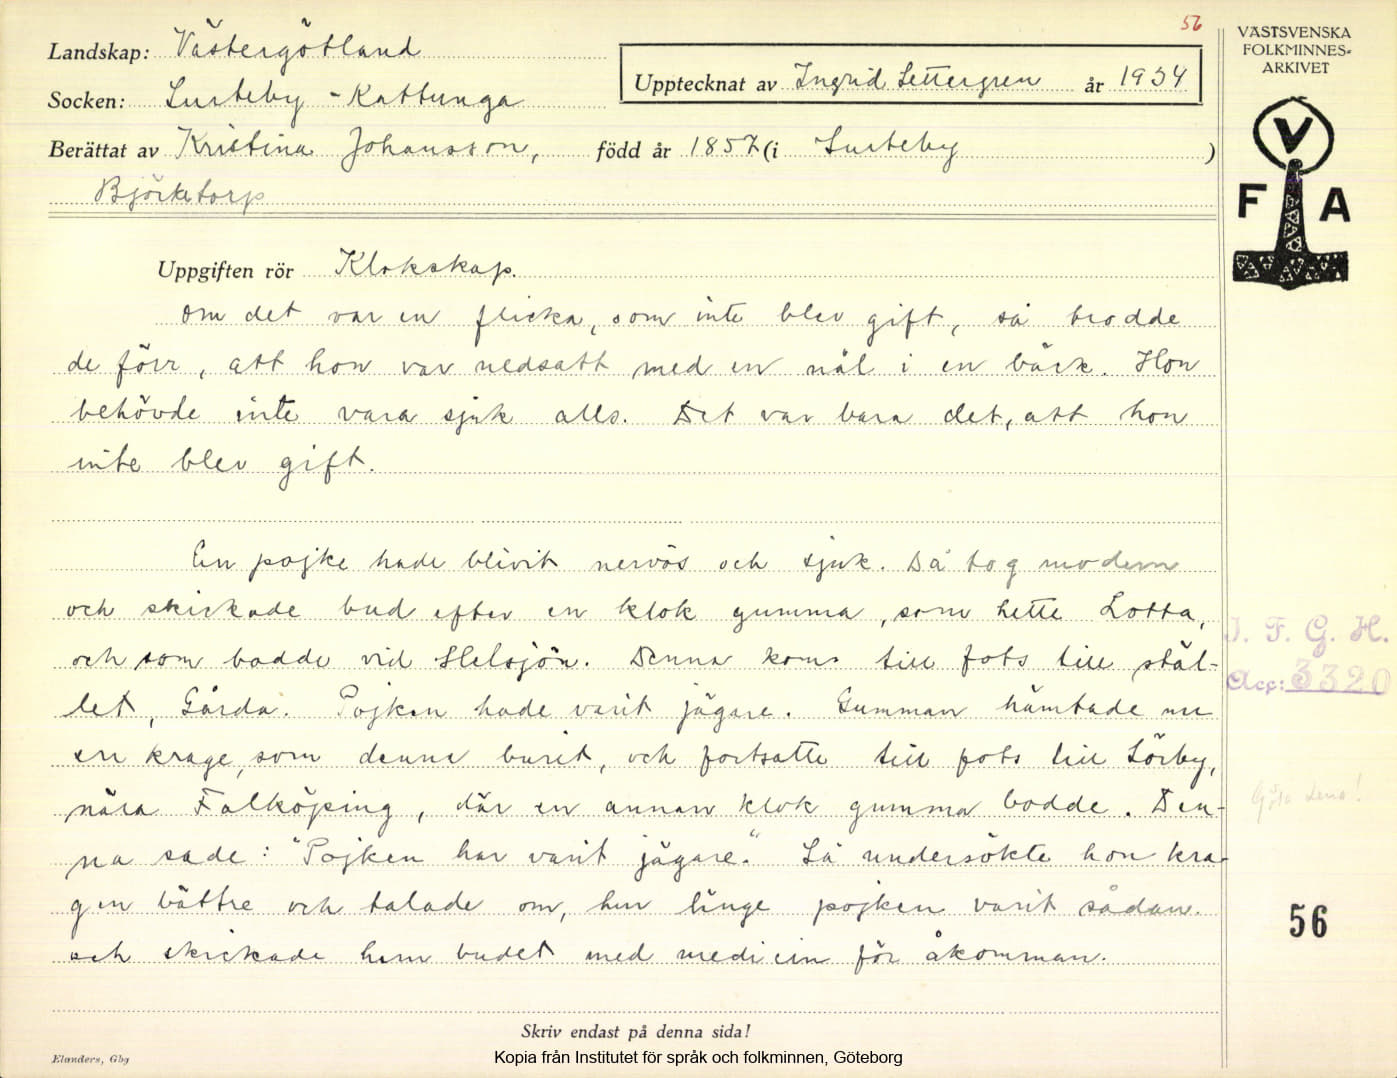 56
Landskap: Västergötland
Socken: Surteby-Kattunga
Upptecknat av Ingrid Settergren år 1934
Berättat av Kristina Johansson, född år 1857 (i Surteby )
Björketorp
VÄSTSVENSKA
FOLKMINNES-
ARKIVET
V
F A
Uppgiften rör Klokskap.
Om det var en flicka, som inte blev gift, så trodde
de förr, att hon var nedsatt med en nål i en bäck. Hon
behövde inte vara sjuk alls. Det var bara det, att hon
inte blev gift.
En pojke hade blivit nervös och sjuk. Då tog modern
och skickade bud efter en klok gumma, som hette Lotta,
och som bodde vid Helsjön. Denna kom till fots till stäl-
let, Gärda. Pojken hade varit jägare. Gumman hämtade nu
en krage, som denne burit, och fortsatte till fots till Sörby,
nära Falköping, där en annan klok gumma bodde. Den-
na sade: "Pojken har varit jägare." Så undersökte hon kra-
gen bättre och talade om, hur länge pojken varit sådan
och skickade hem budet med medicin för åkomman.
I. F. G. H.
Acc: 3320
56
Skriv endast på denna sida!
Elanders, Gbg
Kopia från Institutet för språk och folkminnen, Göteborg